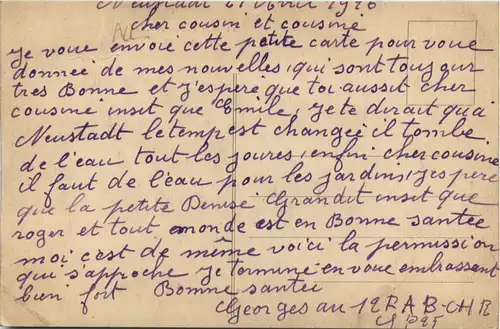 Neustadt 21 Avril 1926
cher cousin et cousine
Je vous envoie cette petite carte pour vous
donneé de mes nouvelles, qui sont toujour
tres Bonne et j'espère que toi aussit cher
cousine insit que Emile, je te dirait qua
Neustadt le temp est changeé il tombe
de l'eau tout les joures, enfin cher cousine
il faut de l'eau pour les jardins, j'espere
que la petite Denise Grandit insit que
roger et tout monde est en Bonne santée
moi c'est de même voici la permission
qui s'approche je termine en vous embrassent
bien fort Bonne santée
Georges au 12 R A B-CHR
S P 25